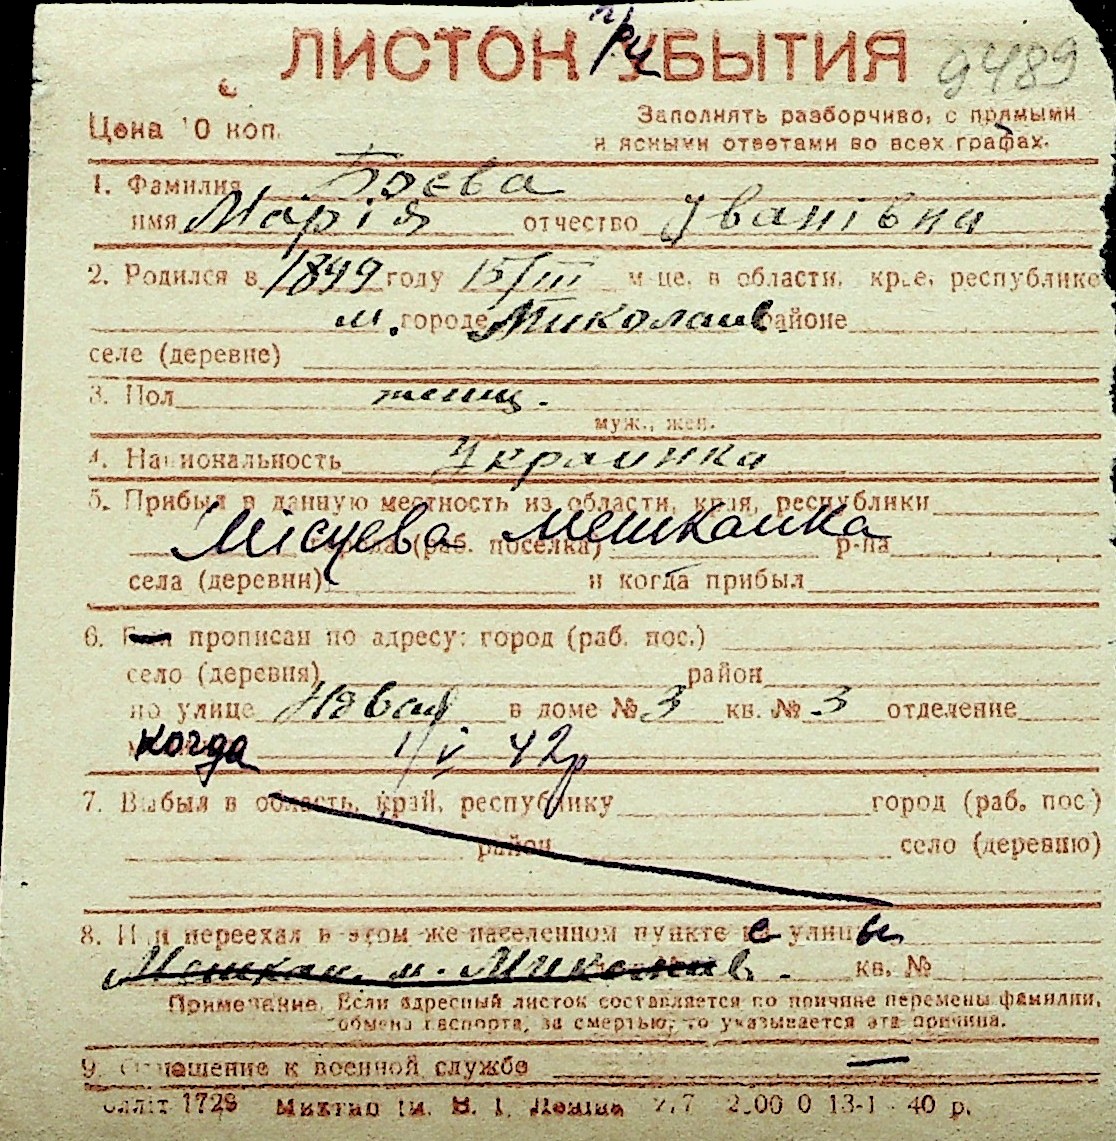 ЛИСТОК УБЫТИЯ
9489
Цена 10 коп.
Заполнять разборчиво, с прямыми
и ясными ответами во всех графах.
1. Фамилия Боєва
имя Марія отчество Іванівна
2. Родился в 1899 году 15/III м-це, в области, крае, республике
м. городе Миколаїв. районе
селе (деревне)
3. Пол женщ.
муж., жен.
4. Национальность Украинка
5. Прибыл в данную местность из области, края, республики
Місцева мешканка
города (раб. поселка) р-на
села (деревни) и когда прибыл
6. Был прописан по адресу: город (раб. пос.)
село (деревня) район
по улице Новая в доме № 3 кв. № 3 отделение
когда 1/V 42р
7. Выбыл в область, край, республику город (раб. пос.)
район село (деревню)
8. Или переехал в этом же населенном пункте с улицы
Мешкан. м. Миколаїв. кв. №
Примечание. Если адресный листок составляется по причине перемены фамилии,
обмена паспорта, за смертью, то указывается эта причина.
9. Отношение к военной службе —
Облліт 1728 Миктип ім. В. І. Леніна 2.00 0 13-1 40 р.